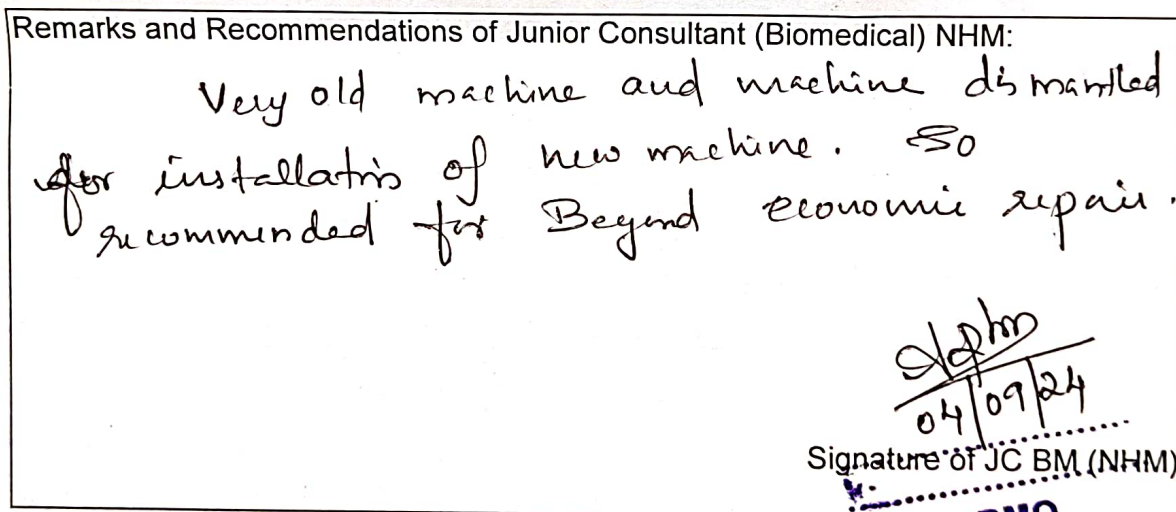 Remarks and Recommendations of Junior Consultant (Biomedical) NHM:
Very old machine and machine dismantled
for installation of new machine. So
recommended for Beyond economic repair.
04/09/24
Signature of JC BM (NHM)